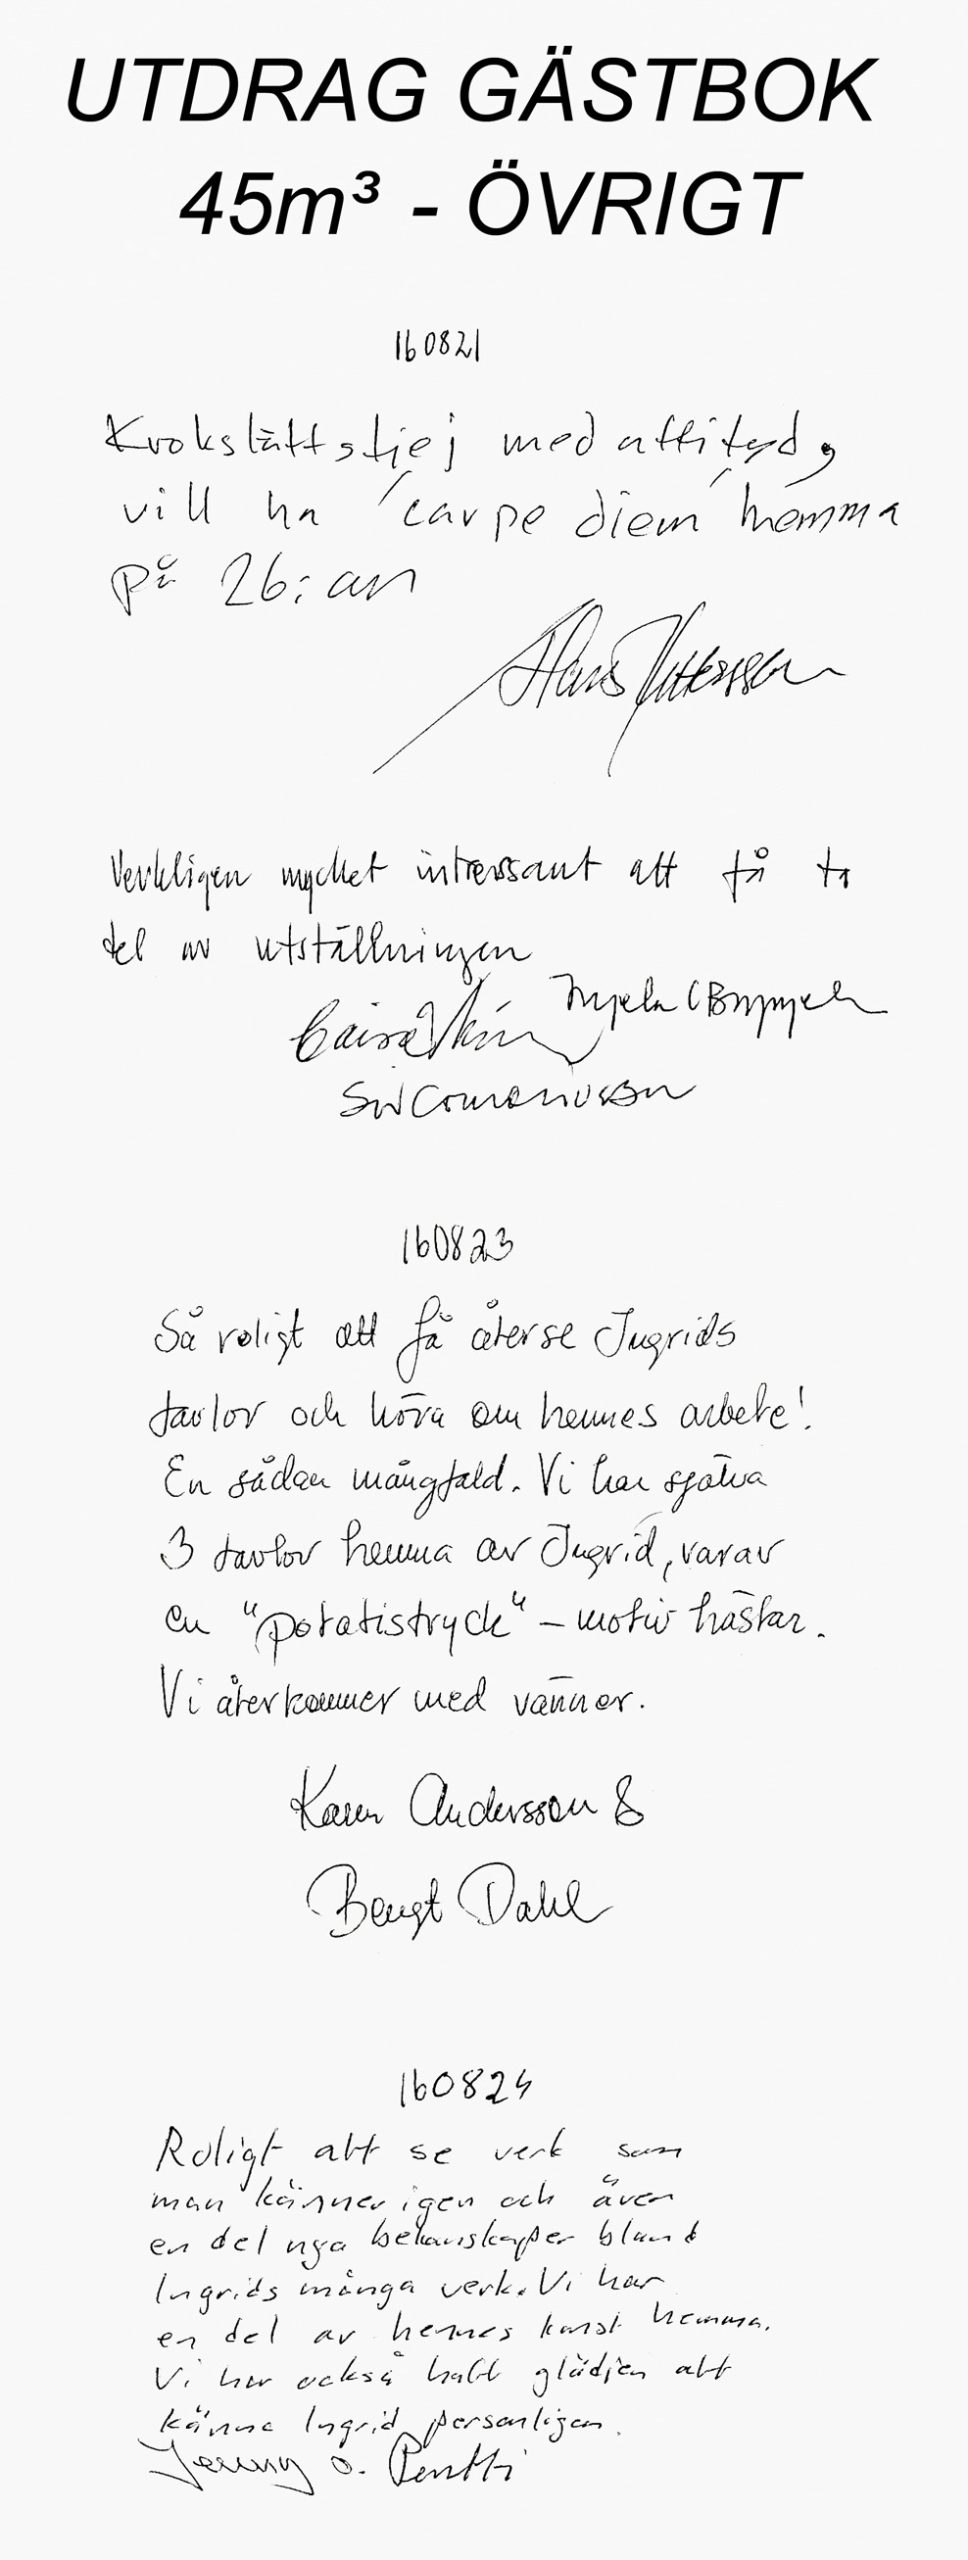 UTDRAG GÄSTBOK
45m³ - ÖVRIGT
160821
Krokslättstjej med attityd,
vill ha carpe diem hemma
på 26:an
Hans
Verkligen mycket intressant att få ta
del av utställningen
Siv
160823
Så roligt att få återse Ingrids
tavlor och höra om hennes arbete!
En sådan mångfald. Vi har själva
3 tavlor hemma av Ingrid, varav
en "potatistryck" – motiv hästar.
Vi återkommer med vänner.
Karin Andersson &
Bengt Dahl
160824
Roligt att se verk som
man känner igen och även
en del nya bekanskaper bland
Ingrids många verk. Vi har
en del av hennes konst hemma.
Vi har också haft glädjen att
känna Ingrid personligen.
Jenny o. Pentti